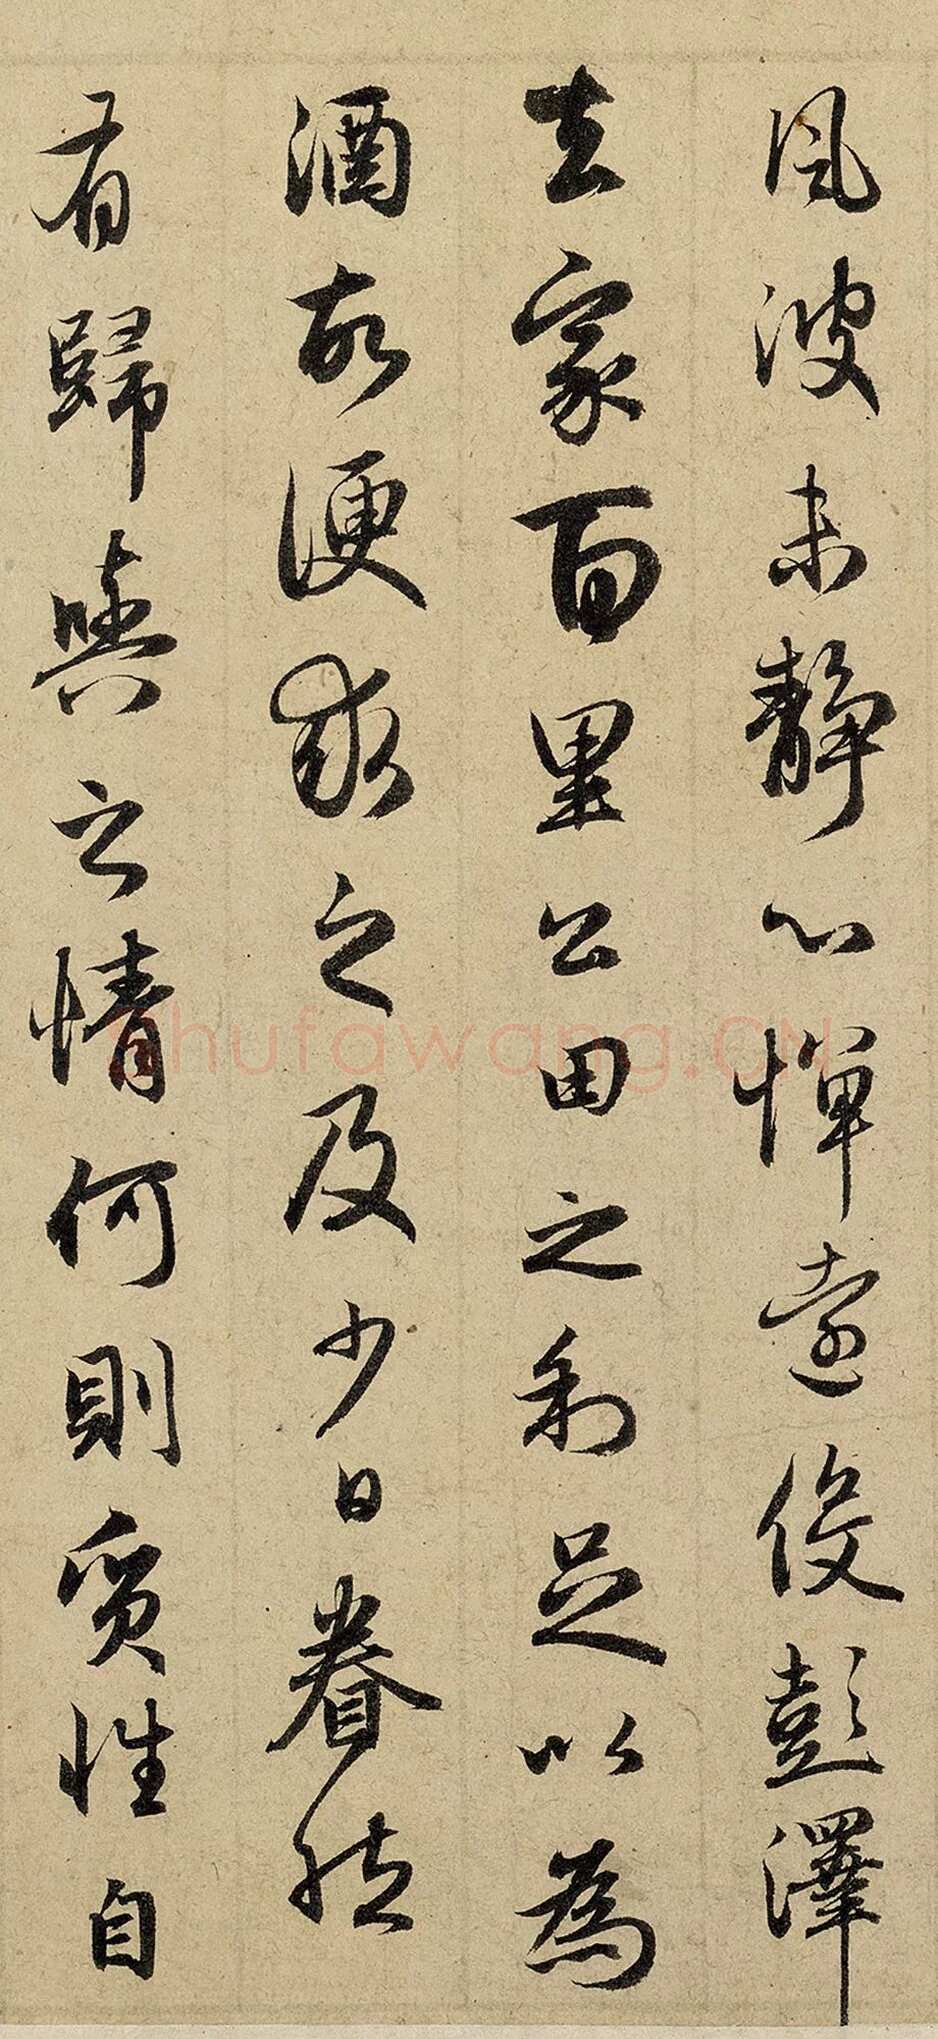 風波未靜心憚遠役彭澤
去家百里公田之利足以為
酒故便求之及少日眷然
有歸與之情何則質性自
shufawang.CN